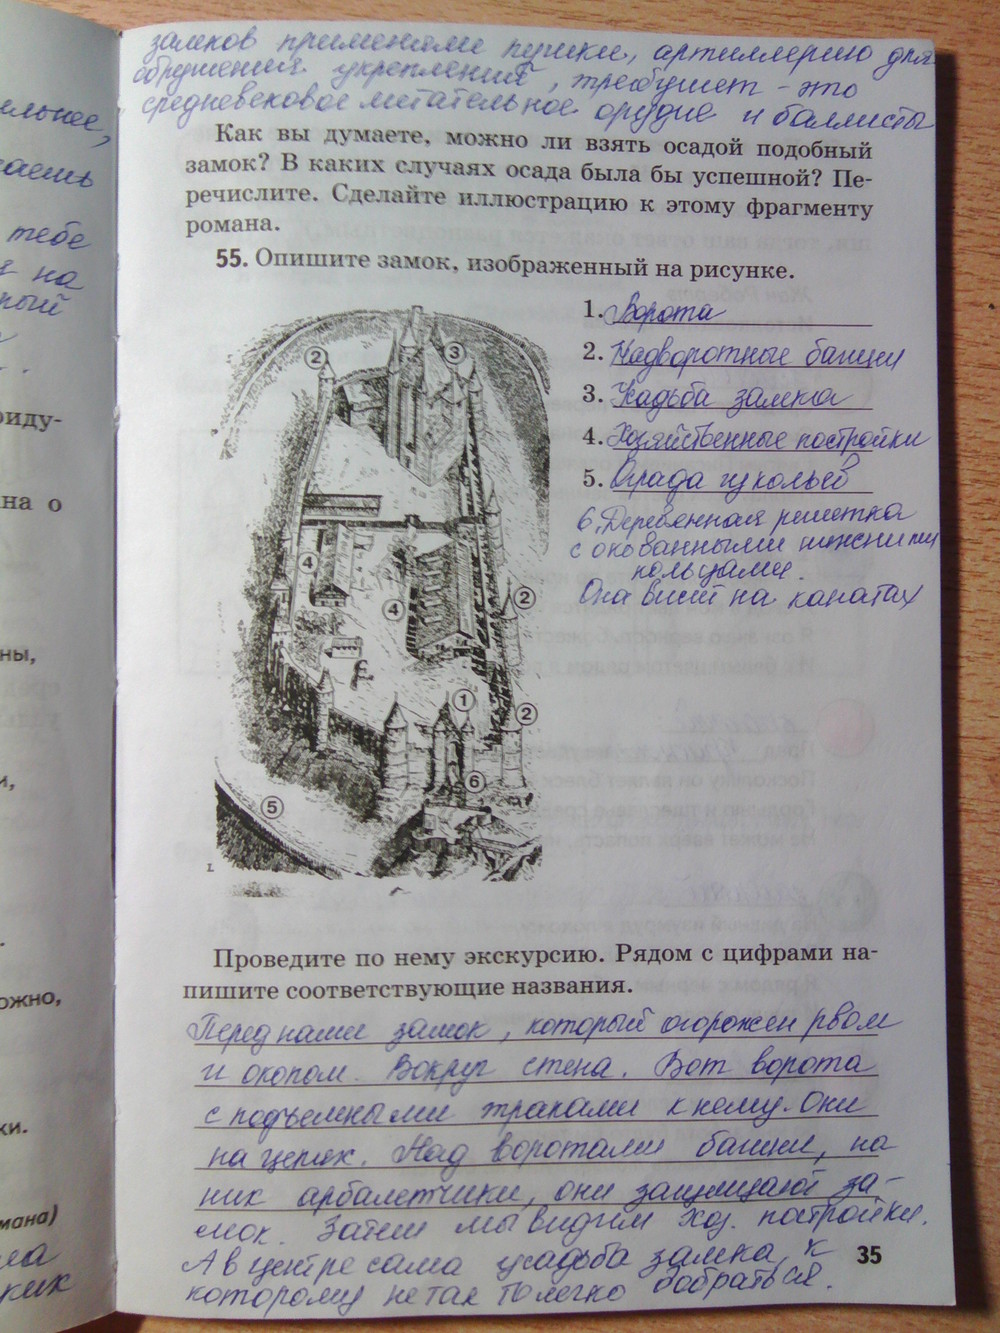 замков применяли пушки, артиллерию для
обрушения укреплений, требушет - это
средневековое метательное орудие и баллисты
Как вы думаете, можно ли взять осадой подобный
замок? В каких случаях осада была бы успешной? Пе-
речислите. Сделайте иллюстрацию к этому фрагменту
романа.
55. Опишите замок, изображенный на рисунке.
1. Ворота
2. Надворотные башни
3. Усадьба замка
4. Хозяйственные постройки
5. Ограда из кольев
6. Деревянная решетка
с окованными нижними
кольцами.
Она висит на канатах
2
3
4
4
2
1
2
6
5
Проведите по нему экскурсию. Рядом с цифрами на-
пишите соответствующие названия.
Перед нами замок, который огорожен рвом
и окопом. Вокруг стена. Вот ворота
с подъемными трапами к нему. Они
на цепях. Над воротами башни, на
них арбалетчики, они защищают за-
мок. Затем мы видим хоз. постройки.
А в центре сама усадьба замка, к
которому не так то легко добраться.
35
ельнее,
аешь
тебе
на
ный
риду-
на о
ны,
и,
ожно,
ки.
мана)
ких